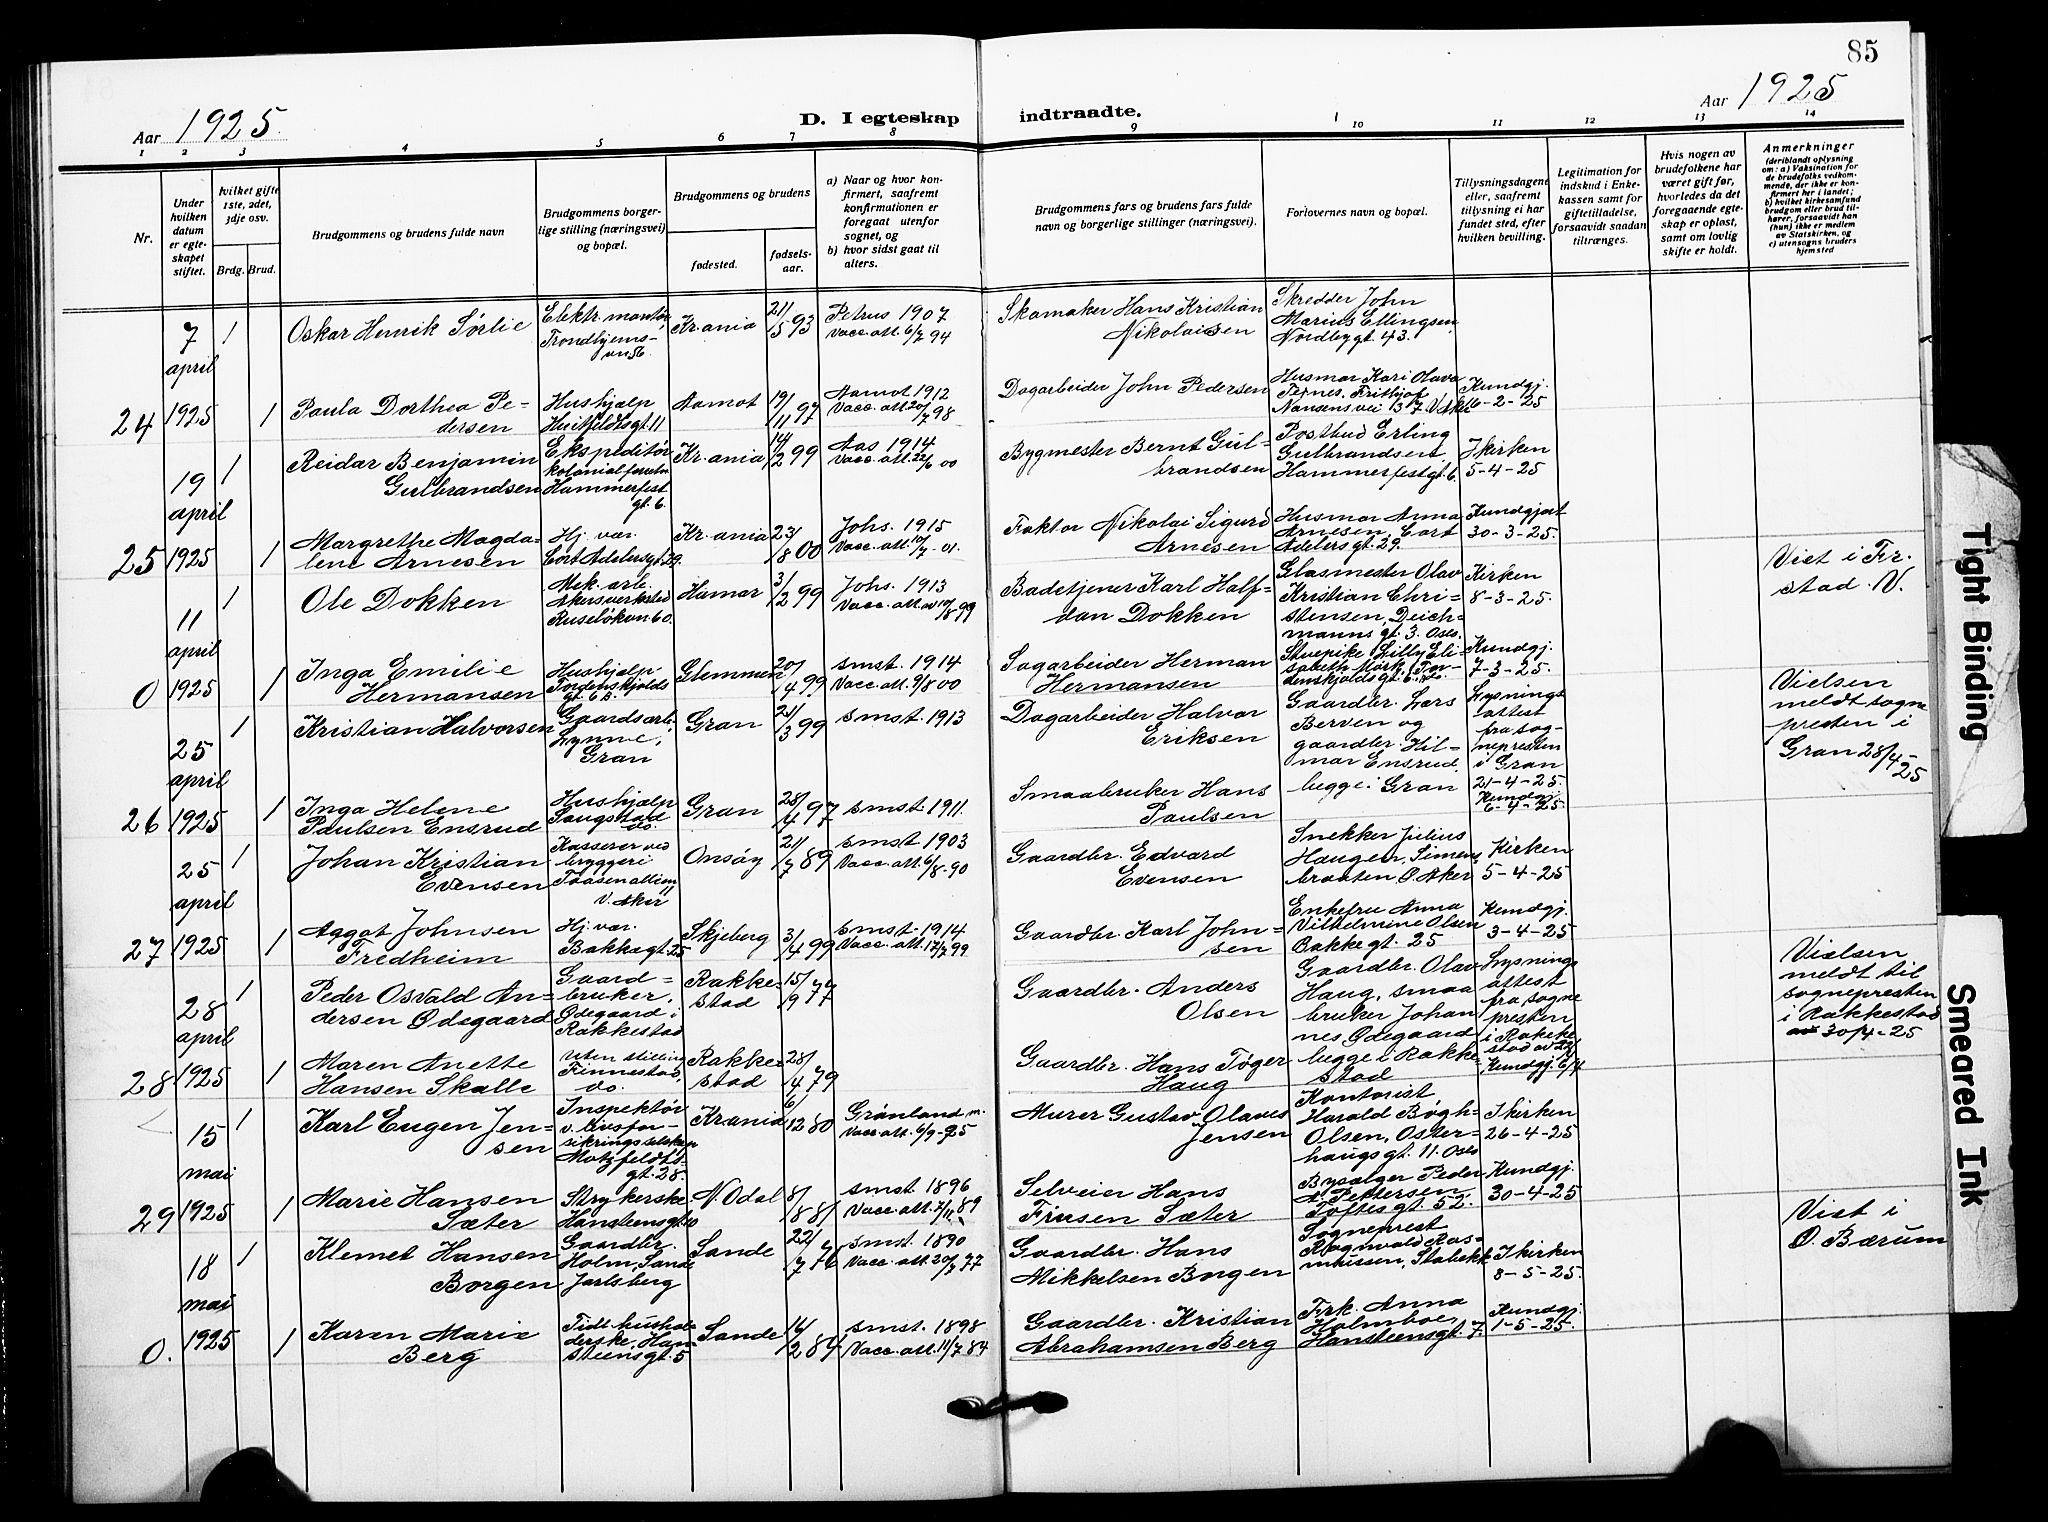 85
Aar 1925
D. I egteskap indtraadte.
Aar 1925
1 2 3 4 5 6 7 8 9 10 11 12 13 14
Nr.
Under hvilken datum er egte-skapet stiftet.
hvilket gifte 1ste, 2det, 3dje osv.
Brdg. Brud.
Brudgommens og brudens fulde navn
Brudgommens borger-lige stilling (næringsvei) og bopæl.
Brudgommens og brudens
fødested.
fødsels-aar.
a) Naar og hvor kon-firmert, saafremt konfirmationen er foregaat utenfor sognet, og
b) hvor sidst gaat til alters.
Brudgommens fars og brudens fars fulde navn og borgerlige stillinger (næringsvei).
Forlovernes navn og bopæl.
Tillysningsdagene eller, saafremt tillysning ei har fundet sted, efter hvilken bevilling.
Legitimation for indskud i Enke-kassen samt for giftetilladelse, forsaavidt saadan tiltrænges.
Hvis nogen av brudefolkene har været gift før, hvorledes da det foregaaende egte-skap er opløst, samt om lovlig skifte er holdt.
Anmerkninger
(deriblandt oplysning om: a) Vaksination for de brudefolks vedkom-mende, der ikke er kon-firmert her i landet; b) hvilket kirkesamfund brudgom eller brud til-hører, forsaavidt han (hun) ikke er medlem av Statskirken, og c) utensogns bruders hjemsted
24 7 april 1925
1 Oskar Henrik Sørlie
Elektr. montør, Trondhjems-vn 56.
Kr.ania 21/5 93
Petrus 1907
Vacc. att. 6/7 94
Skomaker Hans Kristian Nikolaisen
Skredder John Marius Ellingsen Nordbygt. 43.
1 Paula Dorthea Pe-dersen
Hushjælp Huitfeldtsgt. 11
Aamot 19/11 97
Aamot 1912
Vacc. att. 20/7 98
Dagarbeider John Pedersen
Husmor Kari Olava Fritjhof Nansens vei 13
Kundgj. 6-2-25
25 19 april 1925
1 Reidar Benjamin Gulbrandsen
Ekspeditør kolonialforretn. Hammerfest gt. 6.
Kr.ania 14/2 99
Aas 1914
Vacc. att. 22/6 00
Bygmester Bernt Gul-brandsen
Postbud Erling Gulbrandsen Hammerfestgt. 6.
I kirken 5-4-25
1 Margrethe Magda-lene Arnesen
Hj. vær. Cort Adelersgt. 29.
Kr.ania 23/8 00
Johs. 1915
Vacc. att. 10/7-01.
Faktor Nikolai Sigurd Arnesen
Husmor Anna Arnesen, Cort Adelersgt. 29.
Kundgjort 30-3-25.
0 11 april 1925
1 Ole Dokken
Mek. arb. Akersverksted Ruseløkvn 60.
Hamar 3/2 99
Johs. 1913
Vacc. att. 10/8 99
Badetjener Karl Half-dan Dokken
Glasmester Olav Kristian Chri-stensen, Deich-manns gt. 3. Oslo.
Kirken 8-3-25.
Viet i Fr.stad. V.
1 Inga Emilie Hermansen
Hushjælp Tordenskjolds gt. 6 b.
Glemmen 20/4 99
smst. 1914
Vacc. att. 9/8 00
Sagarbeider Herman Hermansen
Stuepike Lilly Eli-sabeth Mørk, Tor-denskjolds gt. 6
Kundgj. 7-3-25.
26 25 april 1925
1 Kristian Halvorsen
Gaardsarb. Lynne, Gran
Gran 21/3 99
smst. 1913
Dagarbeider Halvor Eriksen
Gaardbr. Lars Berven og gaardbr. Hil-mar Ensrud, begge i Gran
Lysnings attest fra sog-nepresten i Gran 21-4-25
Vielsen meldt sogne presten i Gran 28/4-25
1 Inga Helene Paulsen Ensrud
Hushjælp Saugstad do.
Gran 28/4 97
smst. 1911.
Smaabruker Hans Paulsen
Kundgj. 6-4-25.
27 25 april 1925
1 Johan Kristian Evensen
Kasserer ved bryggeri Taasenalleen 11 V. Aker
Onsøy 21/7 89
smst. 1903
Vacc. att. 6/8-90
Gaardbr. Edvard Evensen
Snekker Julius Haugen, Simens-braaten, Ø. Aker
Kirken 5-4-25
1 Aggot Johnsen Fredheim
Hj. vær. Bakkegt. 25
Skjeberg 3/4 99
smst. 1914
Vacc. att. 17/7 99
Gaardbr. Karl John-sen
Enkefru Anna Vilhelmine Olsen Bakkegt. 25
Kundgj. 3-4-25
28 28 april 1925
1 Peder Osvald An-dersen Ødegaard
Gaard-bruker. Ødegaard i Rakkestad
Rakke-stad 15/19 77
Gaardbr. Anders Olsen
Gaardbr. Olav Haug, smaa bruker Johan nes Ødegaard begge i Rakke-stad
Lysnings attest fra sogne presten i Rakke-stad av 22/4
Vielsen meldt til sognepresten i Rakkestad 30/4-25
1 Maren Anette Hansen Skalle
Uten stilling Finnestad, do.
Rakke-stad 28/4 79
Gaardbr. Hans Tøger Haug
Kundgj. 6/4
29 15 mai 1925
1 Karl Eugen Jen-sen
Inspektør v. livsfor-sikringsselskap Motzfeldts-gt. 28.
Kr.ania 6/12 80
Grønland m.
Vacc. att. 6/9-95
Murer Gustav Olaves Jensen
Kontorist Harald Bøgh-Olsen, Oster-haugs gt. 11. Oslo
I kirken 26-4-25
1 Marie Hansen Sæter
Strykerske Hansteensgt. 10
N. Odal 8/8 81
smst. 1896
Vacc. att. 7/11 89
Selveier Hans Finsen Sæter
Bysælger Peder A. Pettersen Toftesgt. 52.
Kundgj. 30-4-25
0. 18 mai 1925
1 Klemet Hansen Borgen
Gaardbr. Holm, Sande Jarlsberg
Sande 22/7 76
smst. 1890
Vacc. att. 20/7 77
Gaardbr. Hans Mikkelsen Borgen
Sogneprest Ragnvald Ras-mussen, Stabekk
I kirken 8-5-25.
Viet i Ø. Bærum
1 Karen Marie Berg
Fidt. hushol-derske, Han-steensgt. 5
Sande 14/2 84
smst. 1898
Vacc. att. 11/7 84
Gaardbr. Kristian Abrahamsen Berg
Frk. Anna Holmboe, Hansteensgt. 7.
Kundgj. 1-5-25.
Tight Binding
Smeared Ink